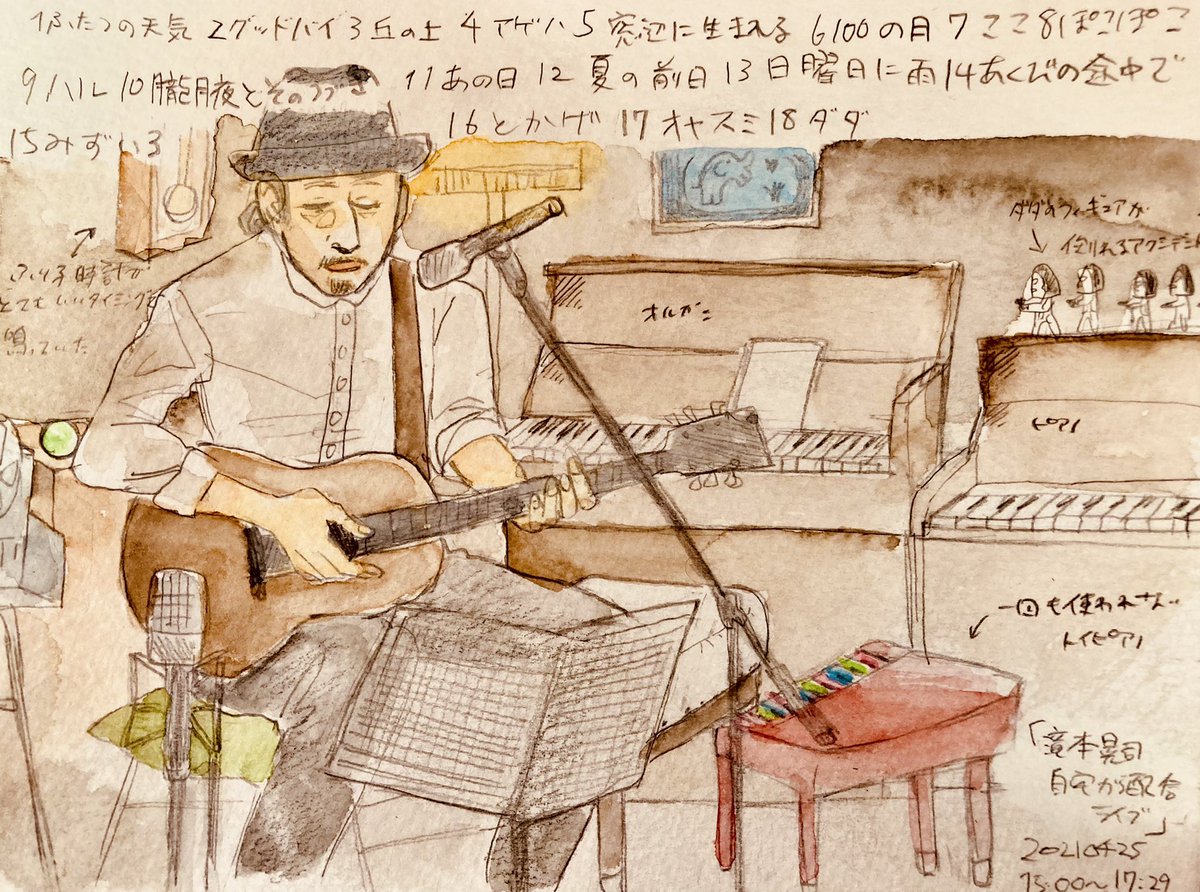 1ふたつの天気 2グッドバイ 3丘の上 4アゲハ 5窓辺に生まれる 6 100の月 7ここ 8ぽこぽこ
9ハル 10朧月夜とそのつづき 11あの日 12夏の前日 13日曜日に雨 14あくびの途中で
15みずいろ 16とかげ 17オヤスミ 18ダダ
ふりこ時計が
とてもいいタイミングで
鳴っていた
ダダのフィギュアが
倒れるアクシデント
オルガン
ピアノ
一回も使われない
トイピアノ
「濱本晃司
自宅から配信
ライブ」
20210425
15:00〜17:29